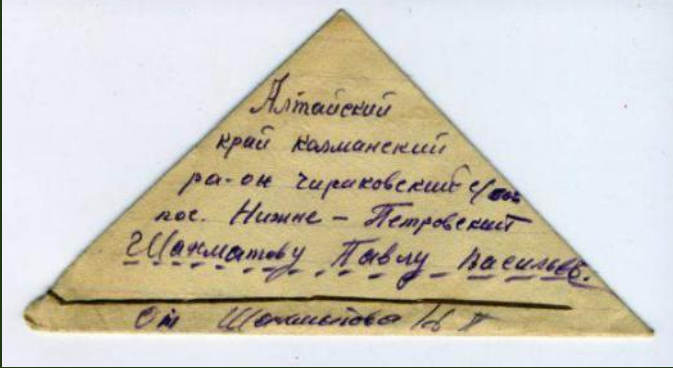 Алтайский
край калманский
ра-он чираковский с/сов
пос. Нижне - Петровский
Шахматову Павлу Васильев.
От Шахматова